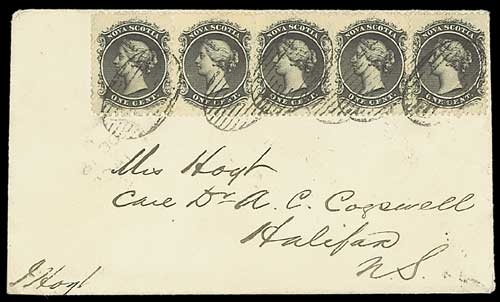 NOVA SCOTIA NOVA SCOTIA NOVA SCOTIA NOVA SCOTIA NOVA SCOTIA
ONE CENT ONE CENT ONE CENT ONE CENT ONE CENT
Mrs Hoyt
Care Dr. A. C. Cogswell
Halifax
N.S.
J Hoyt